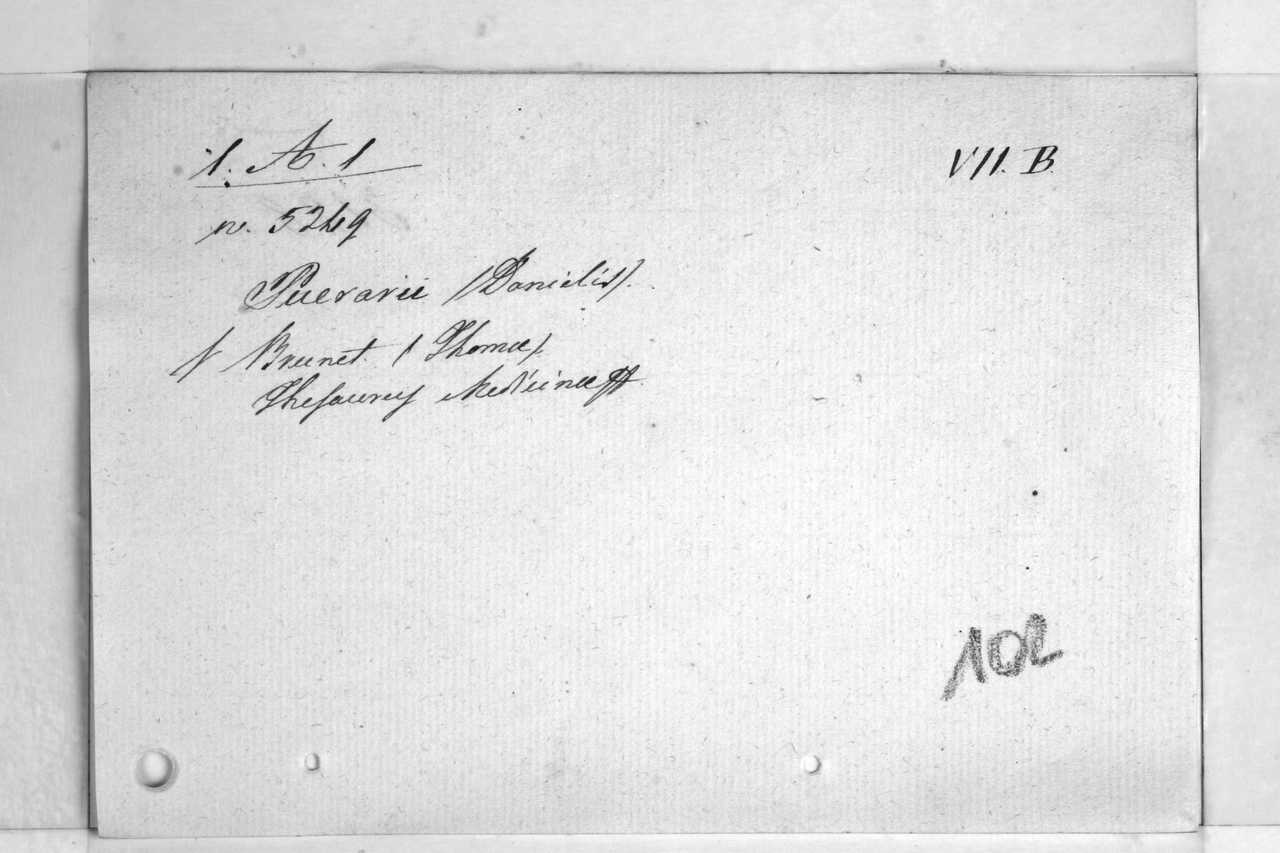 1. A. 1
VII. B.
n. 5249
Puerarii (Danielis).
v Brunet (Thomæ).
Thesaurus Medicinæ
102